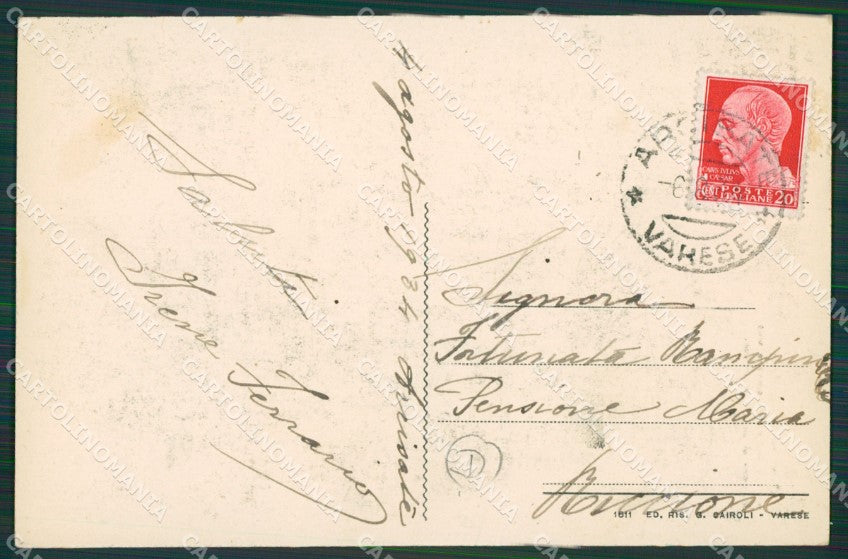 Saluti
Irene Ferrario
4 agosto 1934
Signora
Fortunata
Pensione Maria
Riccione
CAIVS IVLIVS
CAESAR
CENT. 20
POSTE
ITALIANE
VARESE
1611 ED. RIS. G. BAIROLI - VARESE
CARTOLINOMANIA